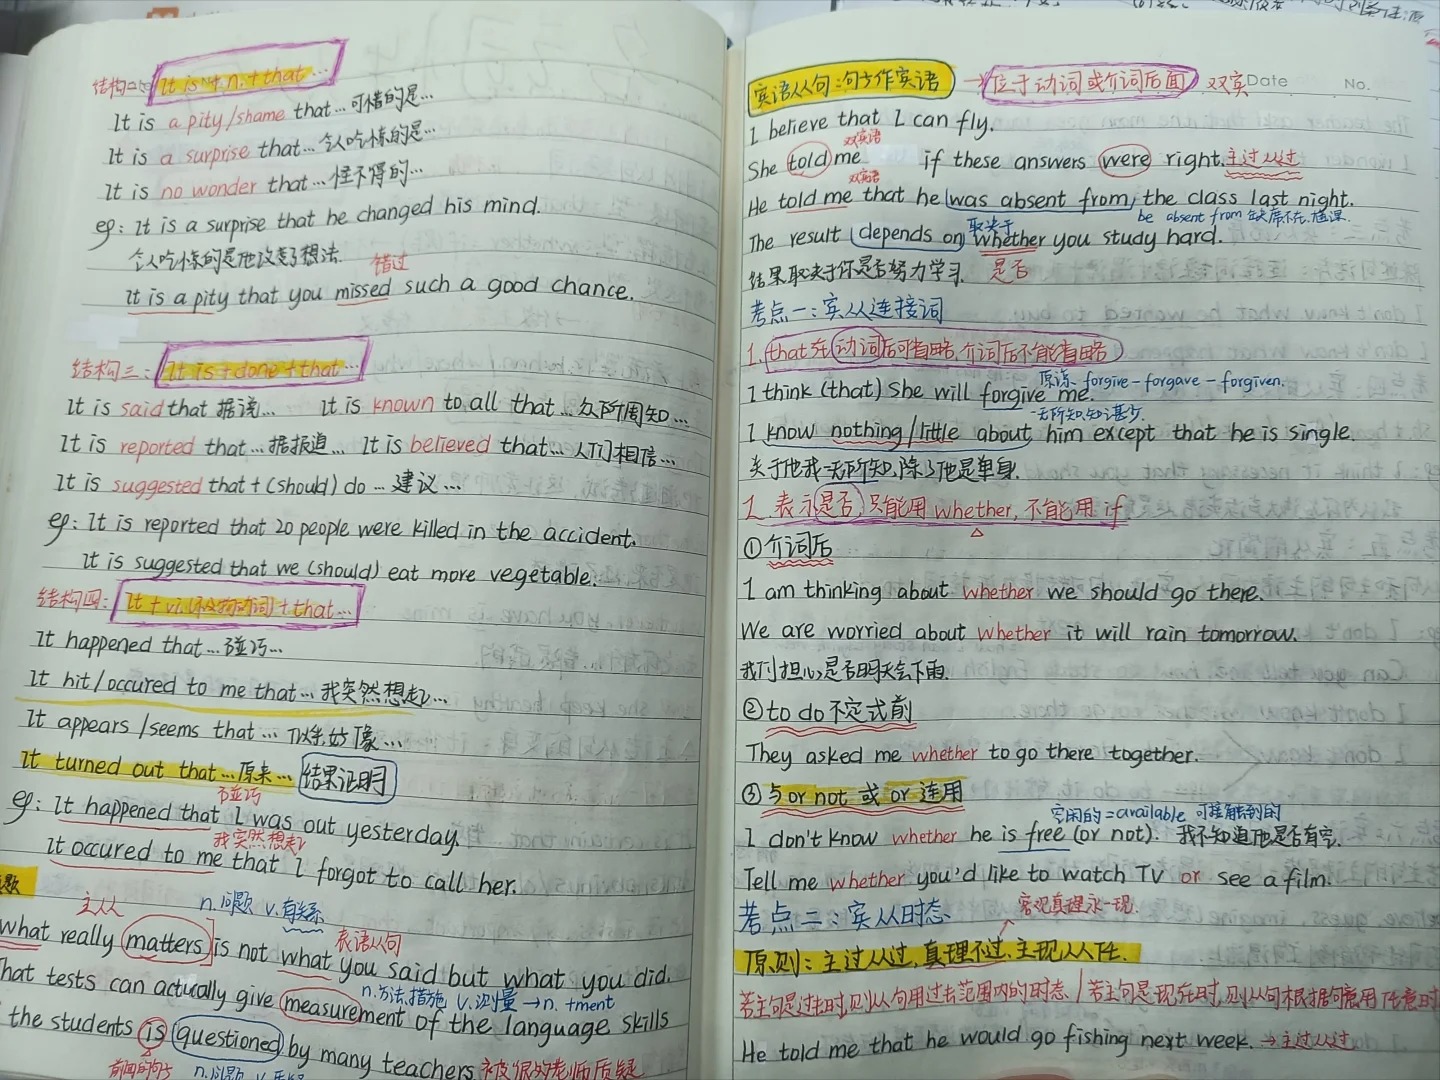 结构二: It is + n. + that...
It is a pity/shame that... 可惜的是...
It is a surprise that... 令人吃惊的是...
It is no wonder that... 怪不得的...
eg: It is a surprise that he changed his mind.
令人吃惊的是他改变了想法.
错过
It is a pity that you missed such a good chance.
结构三: It is + done + that...
It is said that 据说... It is known to all that... 众所周知...
It is reported that... 据报道... It is believed that... 人们相信...
It is suggested that + (should) do ... 建议...
eg: It is reported that 20 people were killed in the accident.
It is suggested that we (should) eat more vegetable.
结构四: It + vi.(不及物动词) + that...
It happened that... 碰巧...
It hit/occured to me that... 我突然想起...
It appears/seems that... 似乎好像...
It turned out that... 原来... 结果证明
碰巧
eg: It happened that I was out yesterday.
我突然想起
It occured to me that I forgot to call her.
题
主从 n.问题 v.有关系
what really matters is not what you said but what you did.
表语从句
That tests can actually give measurement of the language skills
n.方法,措施 v.测量 → n. +ment
the students is questioned by many teachers 被很多老师质疑
宾语从句:句子作宾语 → 位于动词或介词后面 双宾 Date No.
I believe that I can fly.
双宾语
She told me if these answers were right. 主过从过
双宾语
He told me that he was absent from the class last night.
be absent from 缺席
取决于
The result depends on whether you study hard.
结果取决于你是否努力学习. 是否
考点一:宾从连接词
1. that在动词后可省略,介词后不能省略
原谅 forgive - forgave - forgiven.
I think (that) she will forgive me.
一无所知,知之甚少.
I know nothing/little about him except that he is single.
关于他我一无所知,除了他是单身.
1 表示是否,只能用 whether, 不能用 if
① 介词后
I am thinking about whether we should go there.
We are worried about whether it will rain tomorrow.
我们担心是否明天会下雨.
② to do 不定式前
They asked me whether to go there together.
③ 与 or not 或 or 连用
空闲的 = available 可接触到的
I don't know whether he is free (or not). 我不知道他是否有空.
Tell me whether you'd like to watch TV or see a film.
考点二:宾从时态 客观真理永一现.
原则:主过从过,真理不过,主现从任.
若主句是过去时,则从句用过去范围内的时态./若主句是现在时,则从句根据句意用任意时
He told me that he would go fishing next week. → 主过从过